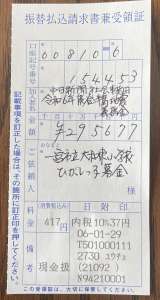 振替払込請求書兼受領証
口座記号番号
00810=6
154453
加入者名
中日新聞社会事業団
令和6年能登半島地震
義援金
金額
¥295677
ご依頼人
一宮市立大和東小学校
料金
417円
内税10%37円
06-01-29
T5010001112
2730 ユウチヨ
備考
現金扱
(21092 )
N94210001
記載事項を訂正した場合は、その箇所に訂正印を押してください。